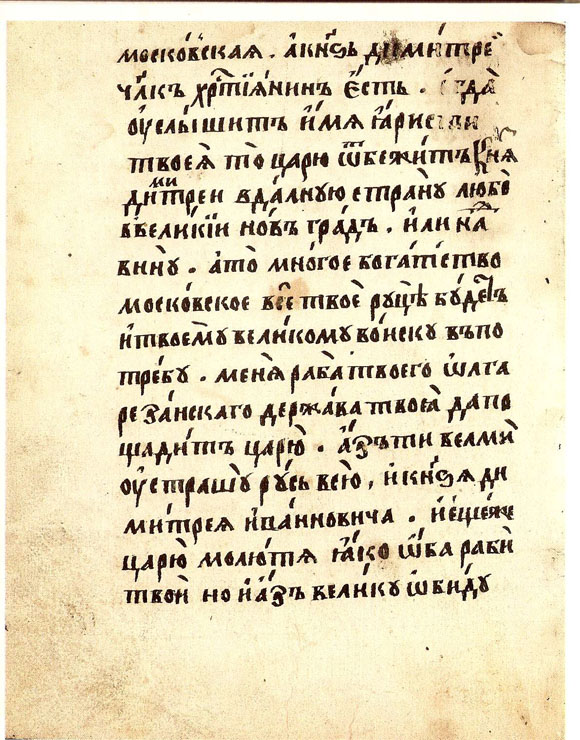 московская . а кн҃зь димитрей
чл҃къ хрⷭ҇тїянинъ е҆сть . егда̀
ѹ҆слы́шитъ и҆́мя ꙗ҆́рости
твоеѧ̀ то царю ѿбежи́тъ кнѧ
димитреи в да́лную странꙋ̀ любо
в вели́кїи но́въ гра́дъ . и҆ли на
двинꙋ̀ . а҆ то многое бога́тество
моско́вское всѐ в твоеи̑ рꙋцѣ̀ бꙋ́детъ
и҆ твоемꙋ̀ вели́комꙋ во́искꙋ въ по
тре́бꙋ . менѧ̀ раба̀ твоего ѡ҆лга
реза́нскаго держа́ва твоѧ̀ да по
щади́тъ царю̀ . а҆́зъ ти велмѝ
ѹ҆страшꙋ̀ рꙋ́сь всю̀ , и҆ кн҃зя ди
ми́трея и҆ва́нновича . и҆ е҆ще́ же
царю̀ молю́тя ꙗ҆́ко ѡ҆́ба рабѝ
твои̑ но и҆ а҆́зъ вели́кꙋ ѡ҆би́дꙋ